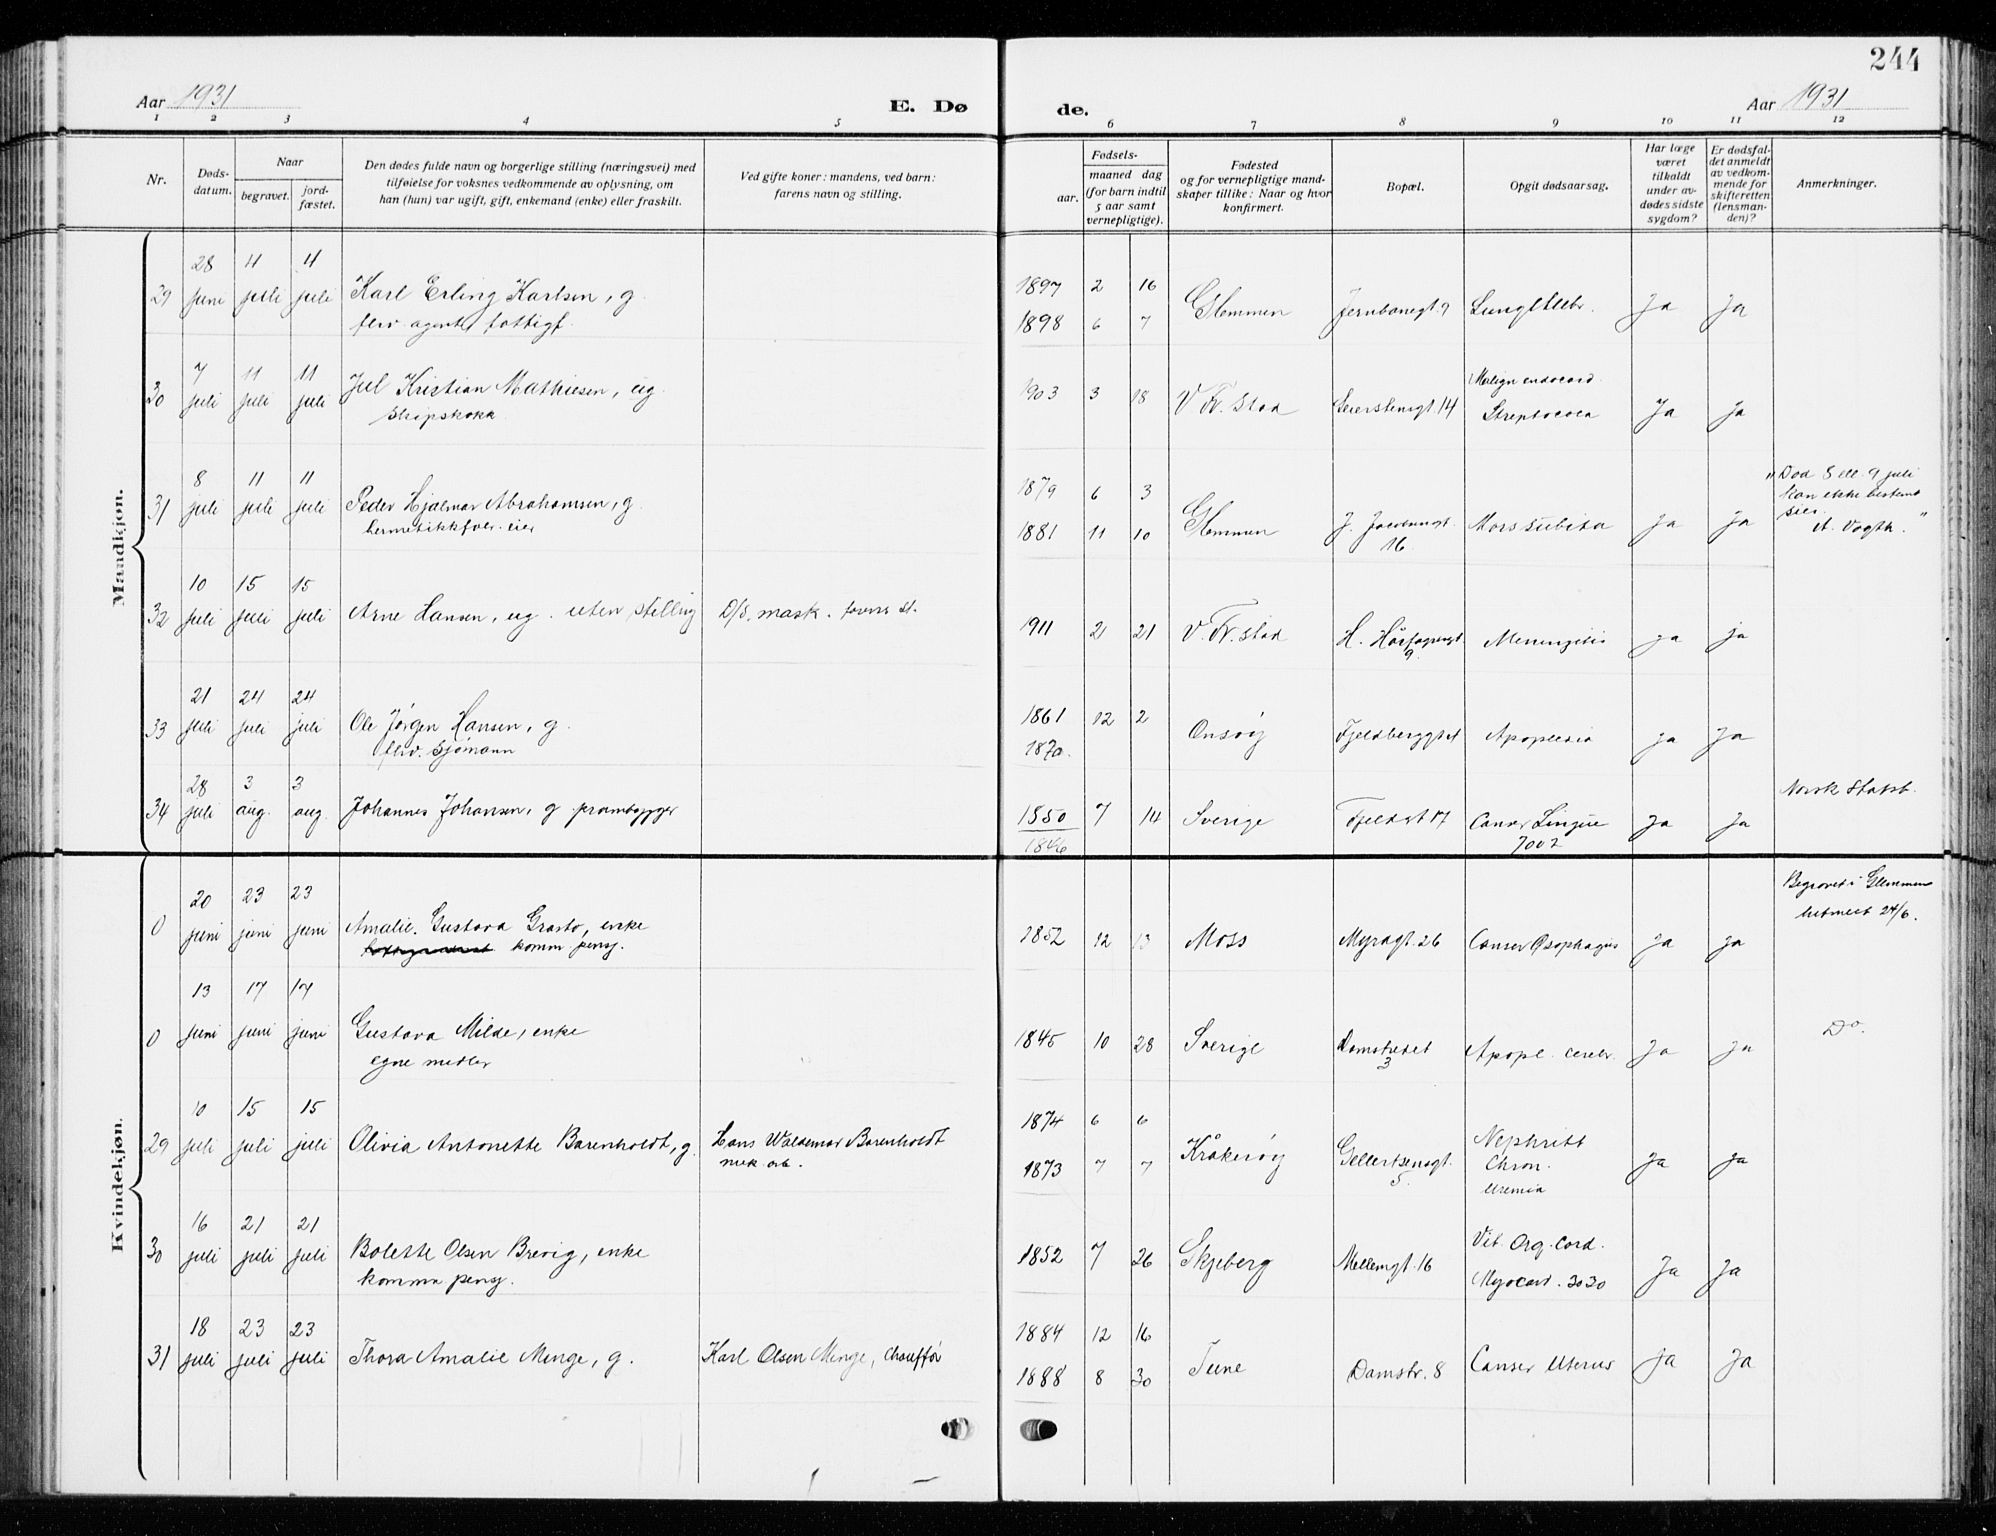 244
Aar 1931
E. Dø
de.
Aar 1931
1 2 3 4 5 6 7 8 9 10 11 12
Nr.
Døds-
datum.
Naar
begravet.
jord-
fæstet.
Den dødes fulde navn og borgerlige stilling (næringsvei) med
tilføielse for voksnes vedkommende av oplysning, om
han (hun) var ugift, gift, enkemand (enke) eller fraskilt.
Ved gifte koner: mandens, ved barn:
farens navn og stilling.
Fødsels-
aar.
maaned dag
(for barn indtil
5 aar samt
vernepligtige).
Fødested
og for vernepligtige mand-
skaper tillike: Naar og hvor
konfirmert.
Bopæl.
Opgit dødsaarsag.
Har læge
været
tilkaldt
under av-
dødes sidste
sygdom?
Er dødsfal-
det anmeldt
av vedkom-
mende for
skifteretten
(lensman-
den)?
Anmerkninger.
Mandkjøn.
28 4 4
29 juni juli juli Karl Erling Karlsen, g.
flrv. agent, fattigf.
1897 2 16
1898 6 7
Glemmen Jernbanegt. 9 Ja Ja
7 11 11
30 juli juli juli Jul Kristian Mathiesen, ug.
Skipskokk
1903 3 18 V Fr. stad 14 Malign endocard.
Streptococ Ja Ja
8 11 11
31 juli juli juli Peder Hjalmar Abrahamsen, g.
hermetikkfabr. eier
1879 6 3
1881 11 10
Glemmen 16 Mors subita Ja Ja
"Død 8 ell. 9 juli
kan ikke bestemt
sies.
A. Vogth."
10 15 15
32 juli juli juli Arne Hansen, ug. uten stilling D/S. mask.
1911 2 21 V. Fr. stad H. Hårfagresgt
9 Meningitis ja ja
21 24 24
33 juli juli juli Ole Jørgen Hansen, g.
flrv. Sjømann
1861 12 2
1870.
Onsøy Fjeldberggt Apoplexia ja ja
28 3 3
34 juli aug. aug. Johannes Johansen, g prambygger
1850 7 14
1846
Sverige Fjeldgt 17 Cancer Lingue Ja Ja
Norsk Statsb.
Kvindekjøn.
20 23 23
0 juni juni juni Amalie Gustava enke
komm. pensj.
1852 12 13 Moss Myragt. 26 Cancer Øsophagus ja ja
Begravet i Glemmen
24/6.
13 17 17
0 juni juni juni Gustava Milde, enke
egne midler
1845 10 28 Sverige Damstredet
3 Apopl. cerebr. Ja Ja
Do.
10 15 15
29 juli juli juli Olivia Antonette Barenholdt, g. Hans Waldemar Barenholdt
mek arb.
1874 6 6
1873 7 7
Kråkerøy Gellertsensgt.
5. Nephritt
Chron.
Uremia Ja Ja
16 21 21
30 juli juli juli Bolette Olsen Brevig, enke
komm. pensj.
1852 7 26 Skjeberg Mellemgt. 16 Vit. Org. Cord.
Myocard. Ja Ja
18 23 23
31 juli juli juli Thora Amalie Minge, g. Karl Olsen Minge, chauffør
1884 12 16
1888 8 30
Tune Damstr. 8 Cancer Uterus ja Ja